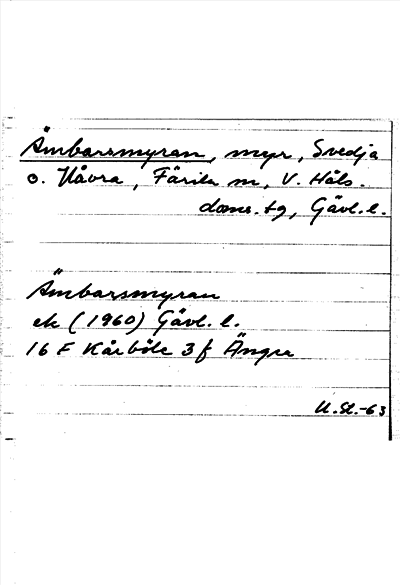 Ämbarsmyran, myr, Svedja
o. Håvra, Färila sn, V. Häls.
doms.tg, Gävl.l.
Ämbarsmyran
ek (1960) Gävl. l.
16 F Kårböle 3 f Ängra
U.St.-63